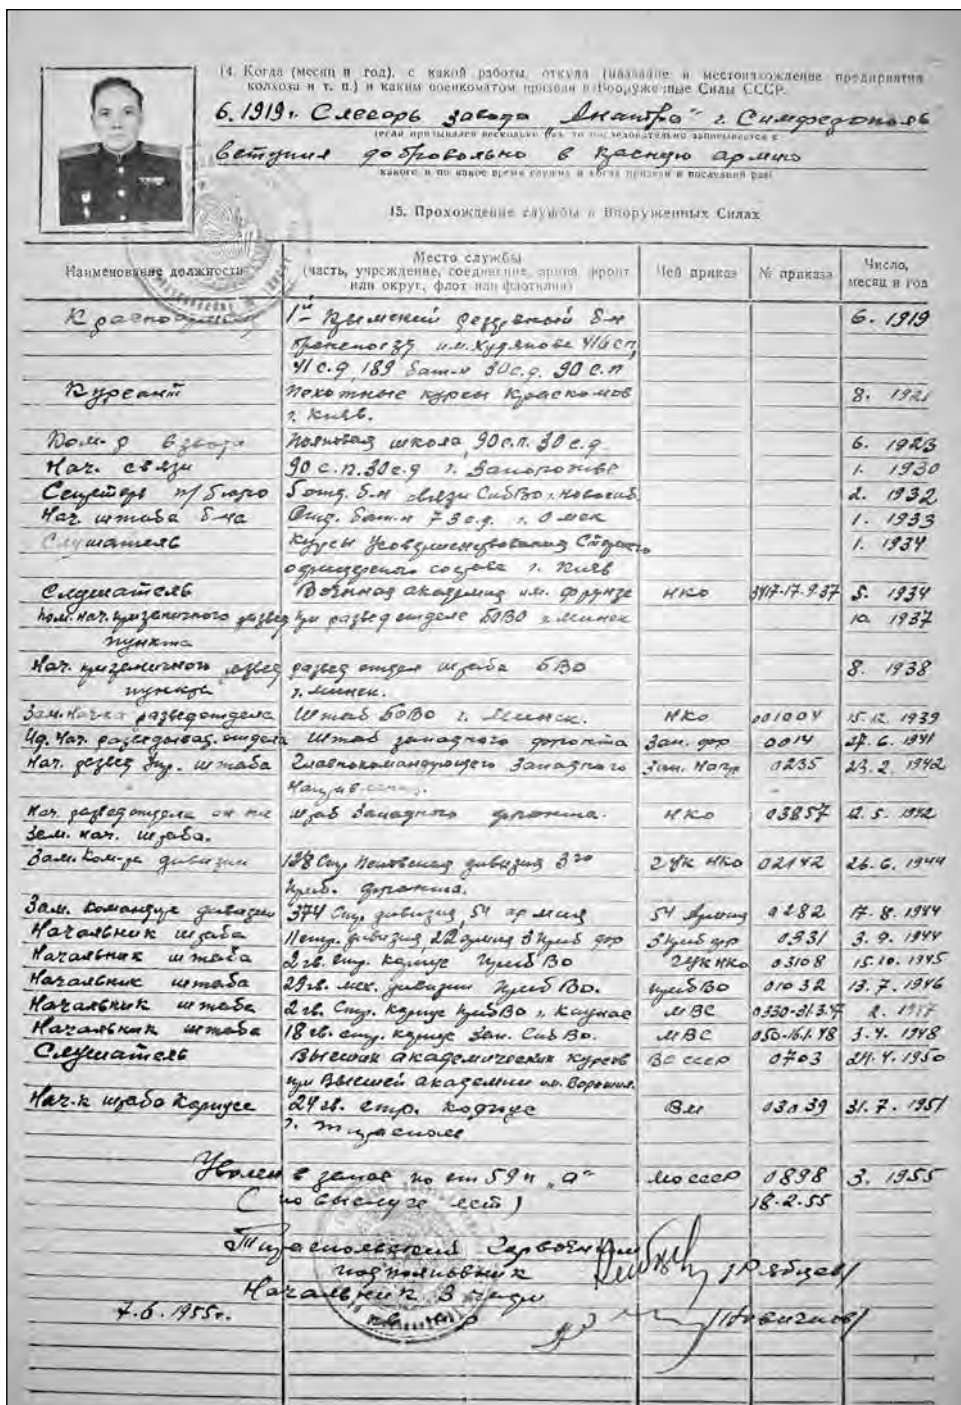 14. Когда (месяц и год), с какой работы, откуда (название и местонахождение предприятия
колхоза и т. п.) и каким военкоматом призван в Вооруженные Силы СССР.
6.1919г. Слесарь завода "Анатра" г. Симферополь
(если призывался несколько раз, то последовательно записывается с
вступил добровольно в красную армию
какого и по какое время служил и когда призван в последний раз)
15. Прохождение службы в Вооруженных Силах
Наименование должности
Место службы
(часть, учреждение, соединение, армия, фронт
или округ, флот или флотилия)
Чей приказ
№ приказа
Число,
месяц и год
Красноармеец 1й Крымский резервный б-н 6. 1919
бронепоезд им. Худякова 416 сп,
41 с.д. 189 бат-н 30 с.д. 90 с.п
Курсант Пехотные курсы Краскомов 8. 1921
г. Киев.
Ком-р взвода Полковая школа 90 с.п. 30 с.д. 6. 1923
Нач. связи 90 с.п. 30 с.д. г. Запорожье 1. 1930
Секретарь п/бюро 5 отд. б-н связи СибВо г. Новосиб. 2. 1932
Нач. штаба б-на Отд. бат-н 73 с.д. г. Омск 1. 1933
Слушатель Курсы Усовершенствования Старшего 1. 1934
офицерского состава г. Киев
Слушатель Военная академия им. Фрунзе НКО 3417-17.9.37 5. 1934
Пом. нач. пограничного развед при разведотделе БОВО г. Минск 10 1937
пункта
Нач. пограничного развед развед отдел штаба БВО 8. 1938
пункта г. Минск.
Зам. Нач-ка разведотдела Штаб БОВО г. Минск. НКО 001004 15.12. 1939
Ид. Нач. разведыват. отдела Штаб западного фронта Зап. фр 0014 27.6. 1941
Нач. развед Упр. штаба Главнокомандующего Западного Зап. Напр 0235 23.2. 1942
Направления.
Нач. разведотдела он же штаб Западного фронта. НКО 03857 12.5. 1942
Зам. нач. штаба.
Зам. Ком-ра дивизии 198 Стр. дивизия 3го ГУК НКО 02142 26.6. 1944
Приб. фронта.
Зам. командира дивизии 374 Стр дивизия 54 армия 54 Армия 0282 17.8. 1944
Начальник штаба 11 стр. дивизия 22 армия 3 Приб фр 3 Приб фр 0931 3.9. 1944
Начальник штаба 2 гв. стр. корпус ПрибВО ГУК НКО 03108 15.10. 1945
Начальник штаба 29 гв. мех. дивизии Приб Во. Приб Во 01032 13.7. 1946
Начальник штаба 2 гв. Стр. Корпус ПрибВо г. Каунас МВС 0330-31.3.47 2. 1947
Начальник штаба 18 гв. стр. корпус Зап. Сиб Во. МВС 050-16.1.48 3.4. 1948
Слушатель Высших академических курсов ВС СССР 0703 24.4. 1950
при Высшей академии им. Ворошил.
Нач-к штаба Корпуса 24 гв. стр. корпус ВМ 03039 31.7. 1951
г. Тирасполь
Уволен в запас по ст 59 п "а" МО СССР 0898 3. 1955
(по выслуге лет) 18.2.55
Тираспольский Горвоенком
подполковник /Рябцев/
Начальник 3 части
7.6.1955г.